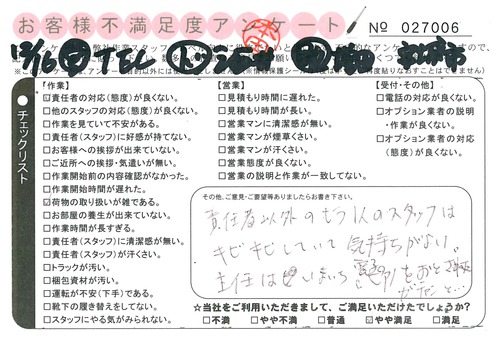 お客様不満足度アンケート
No 027006
【作業】
☑責任者の対応(態度)が良くない。
□他のスタッフの対応(態度)が良くない。
□作業を見ていて不安がある。
□責任者(スタッフ)に好感が持てない。
□お客様への挨拶が出来ていない。
□ご近所への挨拶・気遣いが無い。
□作業開始前の内容確認がなかった。
□作業開始時間が遅れた。
☑荷物の取り扱いが雑である。
□お部屋の養生が出来ていない。
□作業時間が長すぎる。
□責任者(スタッフ)に清潔感が無い。
□責任者(スタッフ)が汗くさい。
□トラックが汚い。
□梱包資材が汚い。
□運転が不安(下手)である。
□靴下の履き替えをしてない。
□スタッフにやる気がみられない。
【営業】
□見積もり時間に遅れた。
□見積もり時間が長い。
□営業マンに清潔感が無い。
□営業マンが煙草くさい。
□営業マンが汗くさい。
□営業態度が良くない。
□営業の説明と作業が一致してない。
【受付・その他】
□電話の対応が良くない。
□オプション業者の説明
・作業が良くない。
□オプション業者の対応
(態度)が良くない。
チェックリスト
その他、ご意見・ご要望等ありましたらお書き下さい。
責任者以外のもう1人のスタッフは
キビキビしていて気持ちがよい。
主任は いまいち
☆当社をご利用いただきまして、ご満足いただけたでしょうか?
□不満 □やや不満 □普通 ☑やや満足 □満足